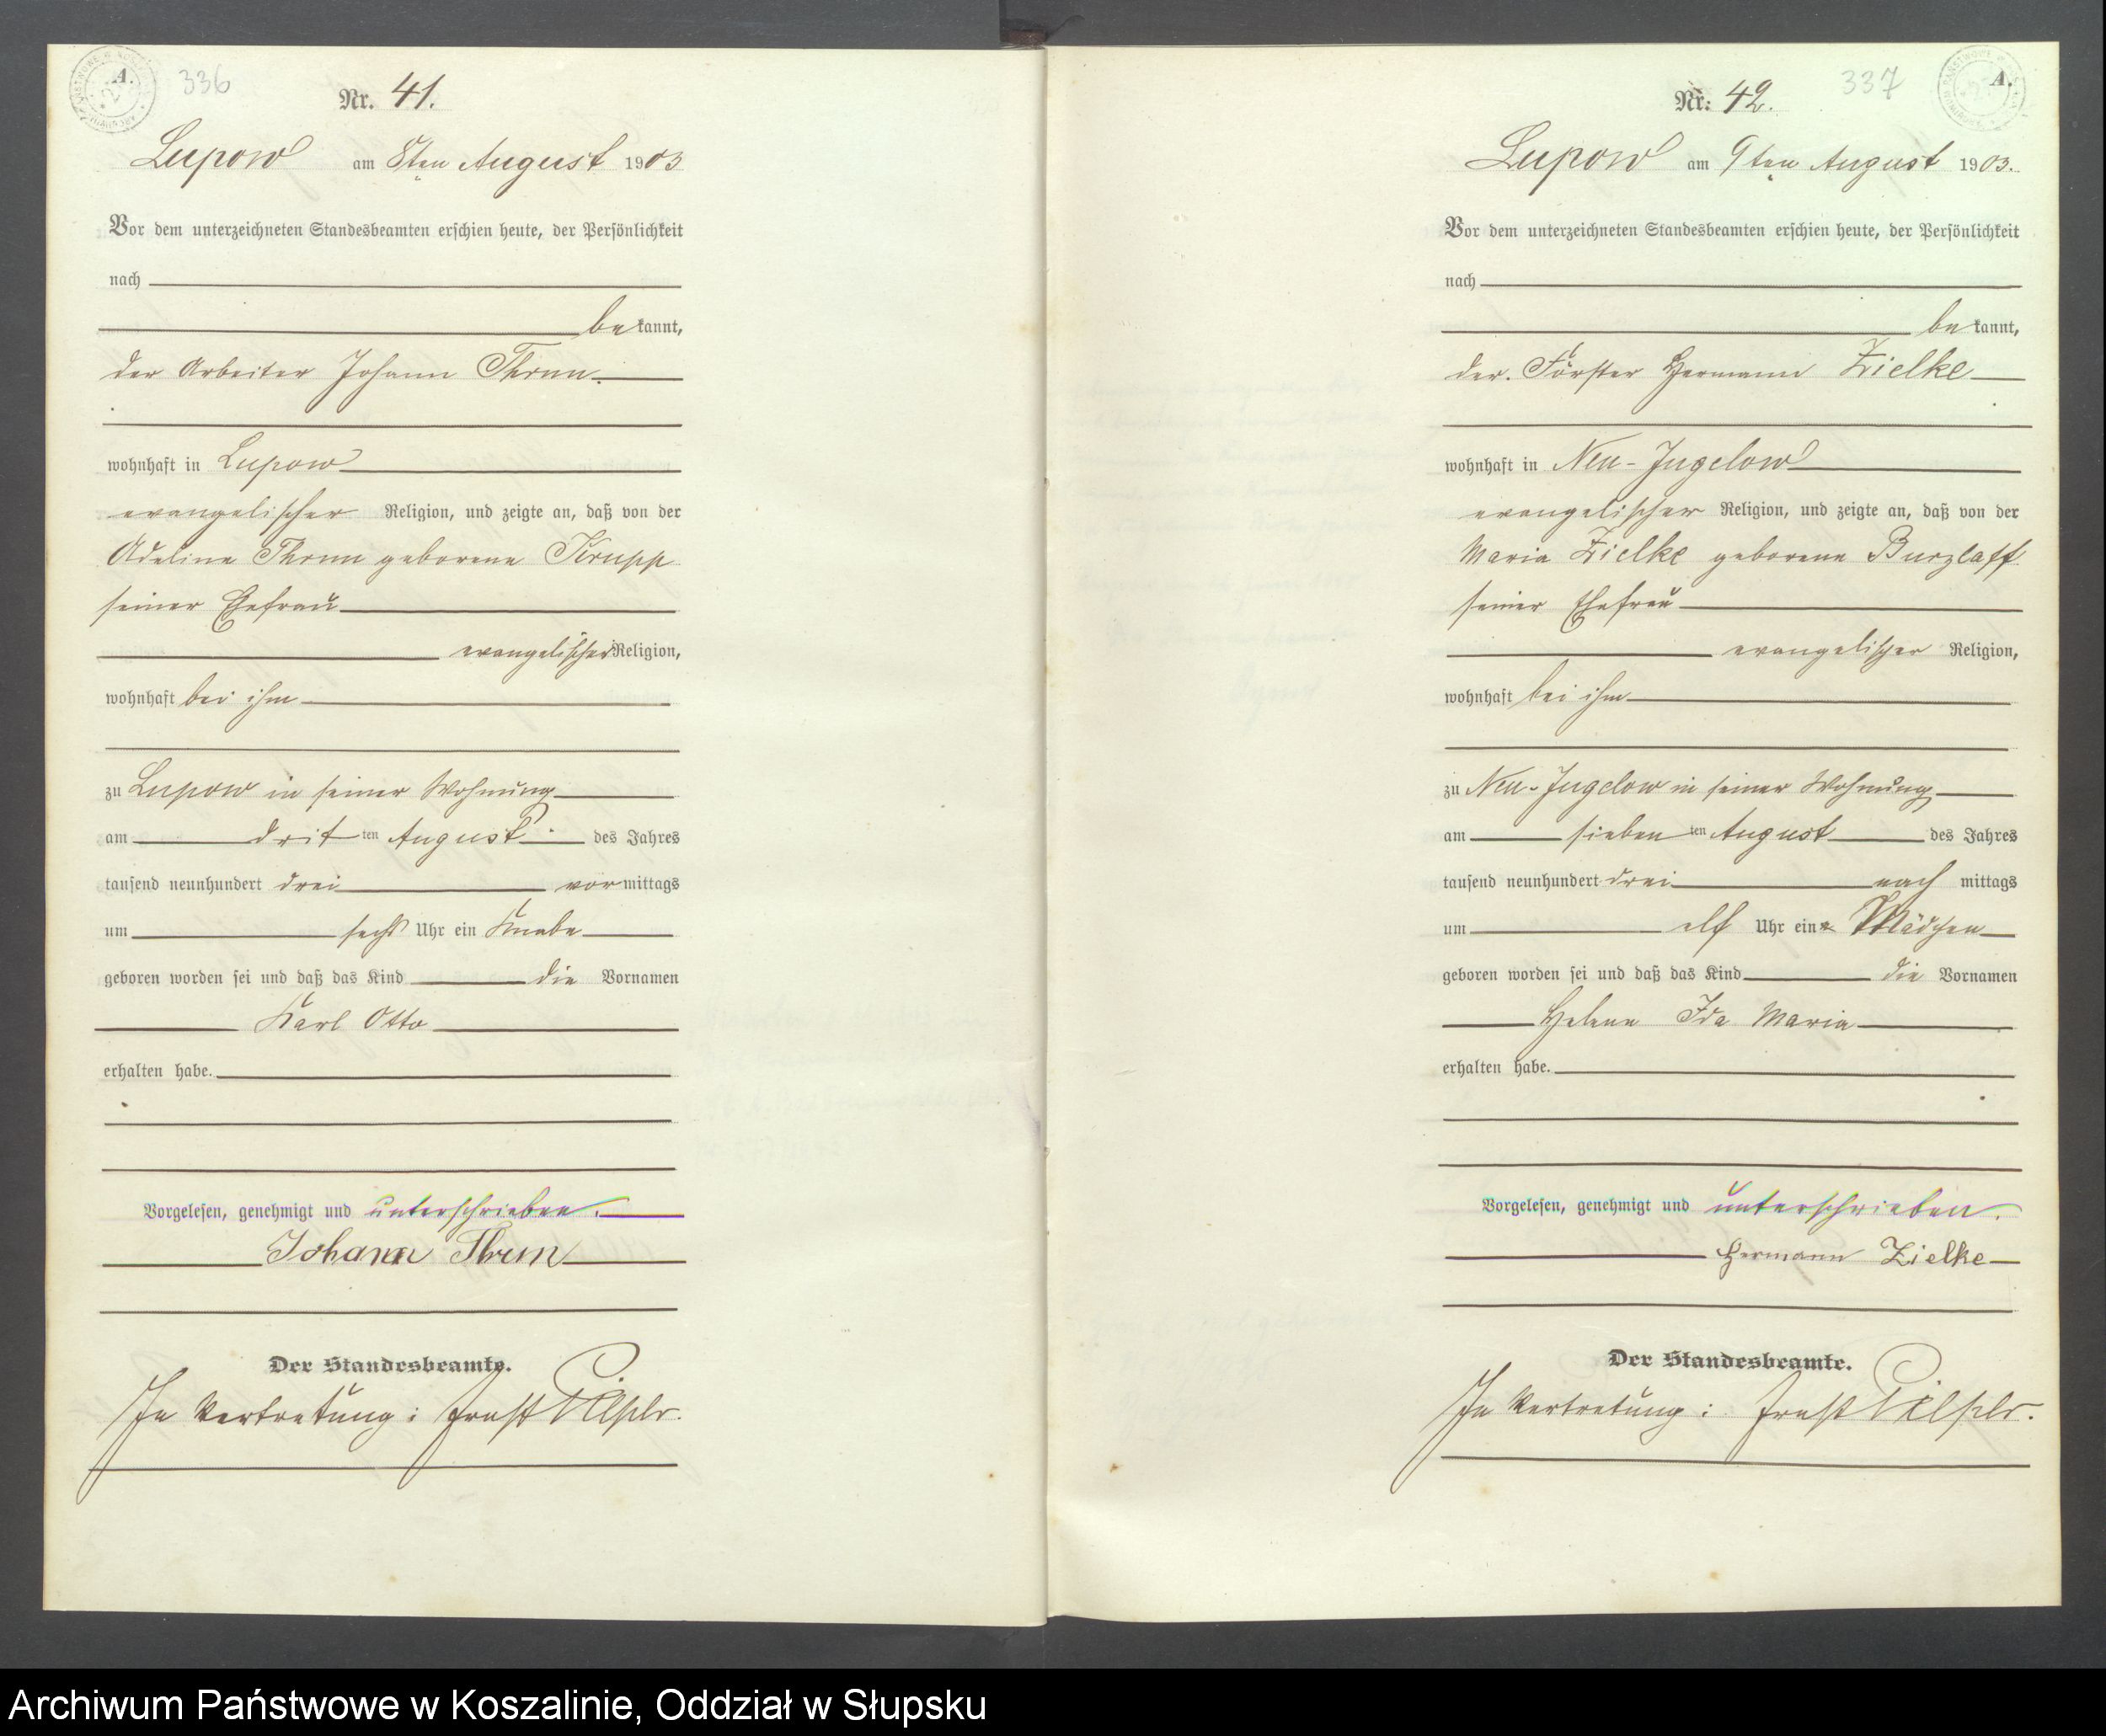 336
A.
Nr. 41.
Lupow am 8ten August 1903
Vor dem unterzeichneten Standesbeamten erschien heute, der Persönlichkeit
nach
bekannt,
der Arbeiter Johann Thrun.
wohnhaft in Lupow
evangelischer Religion, und zeigte an, daß von der
Adeline Thrun geborene Krupp
seiner Ehefrau
evangelischer Religion,
wohnhaft bei ihm
zu Lupow in seiner Wohnung
am dritten August des Jahres
tausend neunhundert drei vormittags
um sechs Uhr ein Knabe
geboren worden sei und daß das Kind die Vornamen
Karl Otto
erhalten habe.
Vorgelesen, genehmigt und unterschrieben.
Johann Thrun
Der Standesbeamte.
In Vertretung: Ernst
337
A.
Nr: 42.
Lupow am 9ten August 1903.
Vor dem unterzeichneten Standesbeamten erschien heute, der Persönlichkeit
nach
bekannt,
der Förster Hermann Zielke
wohnhaft in Neu-Jugelow
evangelischer Religion, und zeigte an, daß von der
Maria Zielke geborene Burzlaff
seiner Ehefrau
evangelischer Religion,
wohnhaft bei ihm
zu Neu-Jugelow in seiner Wohnung
am siebenten August des Jahres
tausend neunhundert drei nach mittags
um elf Uhr ein Mädchen
geboren worden sei und daß das Kind die Vornamen
Helene Ida Maria
erhalten habe.
Vorgelesen, genehmigt und unterschrieben.
Hermann Zielke
Der Standesbeamte.
In Vertretung: Ernst
Archiwum Państwowe w Koszalinie, Oddział w Słupsku